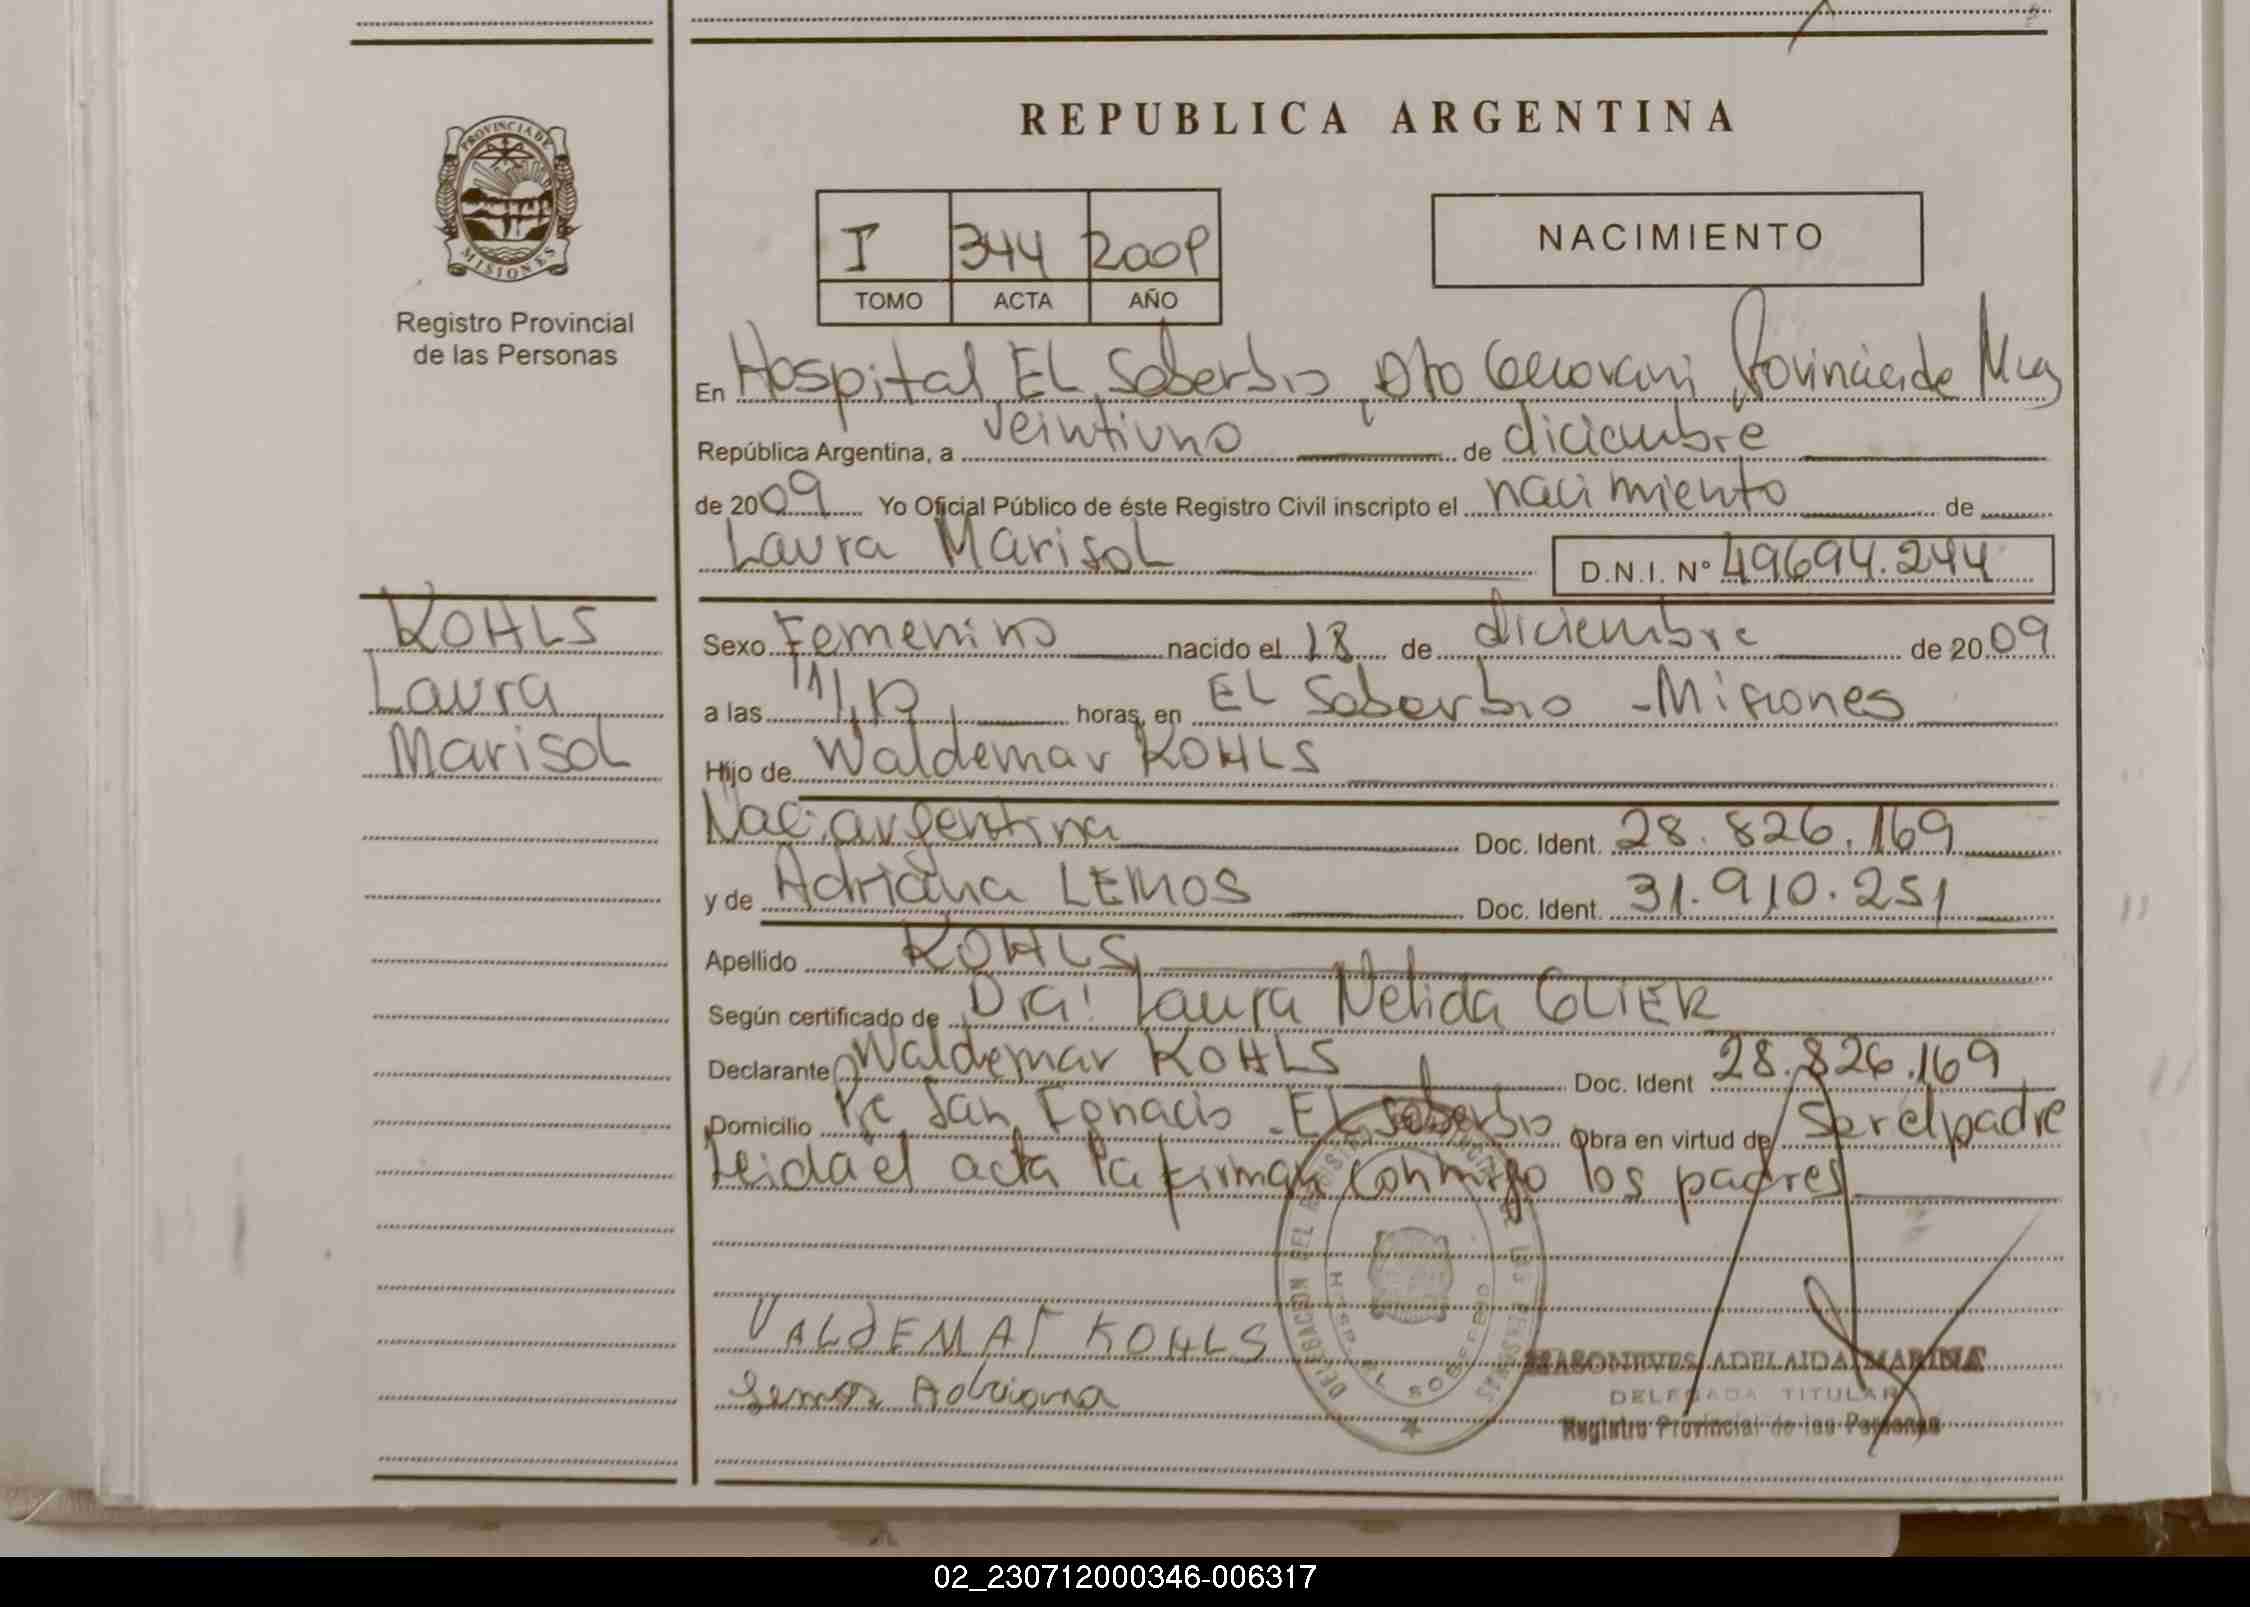 REPUBLICA ARGENTINA
PROVINCIA DE
MISIONES
Registro Provincial
de las Personas
I 344 2009
TOMO ACTA AÑO
NACIMIENTO
En Hospital EL Soberbio, Dto Provincia de
República Argentina, a veintiuno de diciembre
de 2009 Yo Oficial Público de éste Registro Civil inscripto el nacimiento de
Laura Marisol D.N.I. Nº 49694.244
KOHLS
Laura
Marisol
Sexo Femenino nacido el 18 de diciembre de 2009
a las horas, en EL Soberbio - Misiones
Hijo de Waldemar KOHLS
Nac: argentina Doc. Ident. 28.826.169
y de Adriana LEMOS Doc. Ident. 31.910.251
Apellido KOHLS
Según certificado de Dra: Laura Nelida GLIER
Declarante Waldemar KOHLS Doc. Ident 28.826.169
Domicilio San Ignacio - EL Soberbio Obra en virtud de Ser el padre
Leida el acta la firman conmigo los padres
DELEGACION DEL REGISTRO PROVINCIAL DE LAS PERSONAS
HOSP. EL SOBERBIO
VALDEMAR KOHLS
Lemos Adriana
MASONEVES ADELAIDA MARINA
DELEGADA TITULAR
Registro Provincial de las Personas
02_230712000346-006317